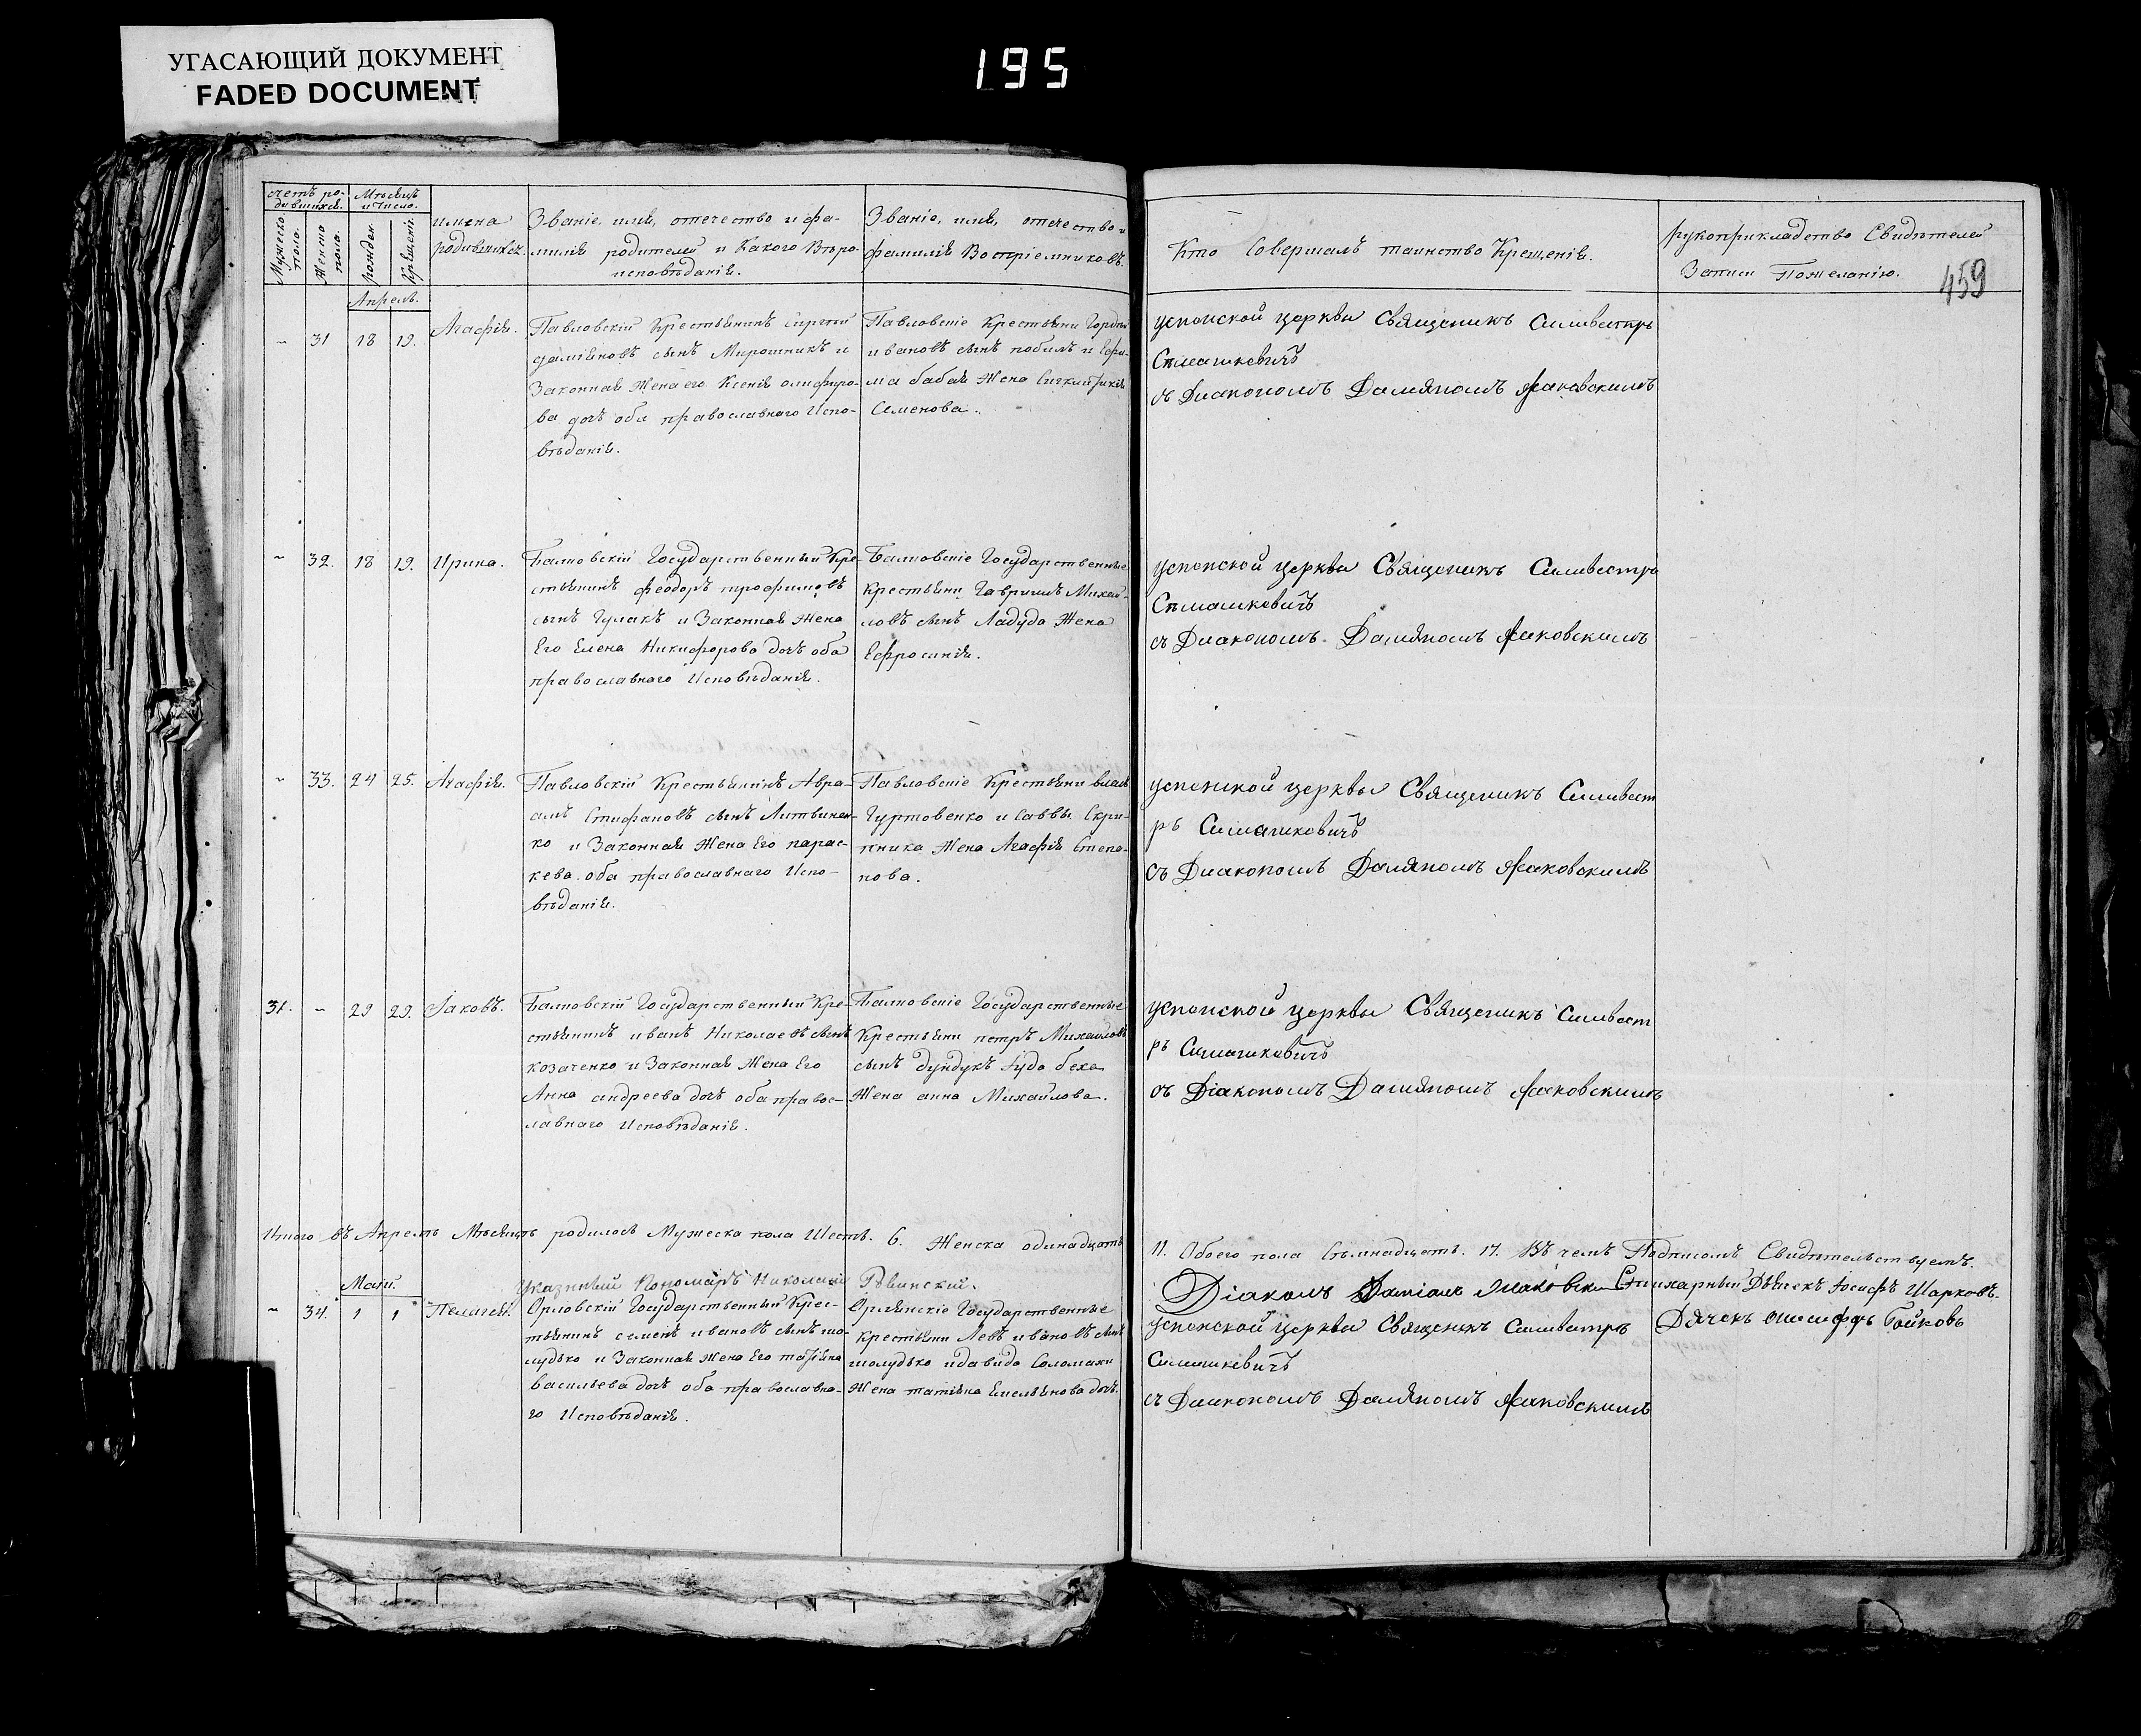 УГАСАЮЩИЙ ДОКУМЕНТ
FADED DOCUMENT
195
счетъ ро-
дившихся.
Мѣсяцъ
и число.
Мужеска
пола.
Женска
пола.
рожден.
крещенія.
имена
родившихся.
Званіе, имя, отечество и фа-
милія родителей и какого вѣро-
исповѣданія.
Званіе, имя, отечество и
фамилія Воспріемниковъ.
Кто Совершалъ таинство Крещенія.
рукоприкладство Свидѣтелей
Записи Пожеланію.
459
Апрель.
~ 31 18 19. Агафія.
Павловскій Крестьянинъ Сергей
даміяновъ сынъ Мирошникъ и
Законная Жена его Ксенія
ва дочъ оба православнаго Испо-
вѣданія.
Павловскіе Крестьяни Гордѣй
ивановъ сынъ и Ефи-
ма бабая Жена
Семенова.
успенской церкви Священикъ Силивестръ
Симашкевичъ
съ Диакономъ Дамяномъ Маковскимъ
~ 32. 18 19. Ирина.
Балтовскій Государственный Кре-
стьянинъ феодоръ трофимовъ
сынъ Гулакъ и Законная Жена
Его Елена Никифорова дочъ оба
православнаго Исповѣданія.
Балтовскіе Государственные
Крестьяни Гавриилъ Михай-
ловъ сынъ Ладуда Жена
Ефросинія.
успенской церкви Священикъ Силивестръ
Симашкевичъ
съ Диакономъ Дамяномъ Маковскимъ
~ 33. 24 25. Агафія.
Павловскій Крестьянинъ Авра-
амъ Стефановъ сынъ Литвинен-
ко и Законная Жена Его парас-
кева оба православнаго Испо-
вѣданія.
Павловскіе Крестьяни власъ
Гуртовенко и Саввы Скри-
пника Жена Агафія Степа-
нова.
успенской церквы Священикъ Силивест
ръ Симашковичъ
съ Диакономъ Дамяномъ Маковскимъ
31. ~ 29 29. Іаковъ.
Балтовскій Государственный Кре-
стьянинъ иванъ Николаевъ сынъ
козаченко и Законная Жена Его
Анна андреева дочъ оба правос-
лавнаго Исповѣданія.
Балтовскіе Государственные
Крестьяни петръ Михайловъ
сынъ дундукъ
Жена анна Михайлова.
успенской церквы Священикъ Силивест
ръ Симашкевичъ
съ Діакономъ Дамяномъ Маковскимъ
Итого въ Апрелѣ Мѣсяцѣ родилось Мужеска пола Шесть. 6. Женска одинадцать
11. Обоего пола Съмнадцать. 17. Въ чемъ Подписомъ Свидѣтельствуетъ.
Указный Пономаръ Николай
Діаконъ Даміанъ Маковски
Стихарный Дьячекъ Іосифъ Шарковъ.
Дячекъ Бойковъ
Маій.
~ 34. 1 1 Пелагея.
Орловскій Государственный Крес-
тьянинъ семенъ ивановъ сынъ шо-
лудько и Законная Жена Его татіяна
Васильева дочъ оба православна-
го Исповѣданія.
Орлянскіе Государственные
крестьяни Левъ ивановъ сынъ
шолудько и давида Соломахи
Жена татіяна Емельянова дочъ.
успенской церкви Священикъ Силивестръ
Симашкевичъ
съ Диакономъ Дамяномъ Маковскимъ